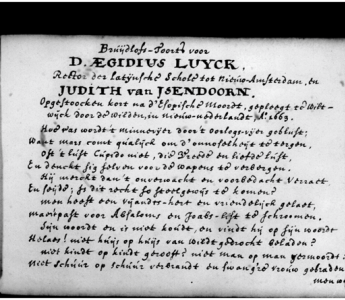 Bruijdlofs-Toorts voor
D. ÆGIDIUS LUYCK,
Rector der Latijnsche Schole tot Nieuw-Amsterdam, en
JUDITH van ISENDOORN,
Opgestoocken kort na d'Esopische Moordt, gepleegt te Wilt-
wijck door de Wilden, in Nieuw-nederlandt, Aº. 1663.
Hoe ras wordt 't minnevijer door 't Oorlogs-vijer geblust!
Want mars comt qualijck om d'onnoselheijt te tergen,
Oft 't lust Cupido niet, die Vrede en liefde lust,
En denckt sig selven voor de wapens te verbergen.
Hij merckt dan 't onverwacht en voorbedacht Verraet
En seijde: Is dit recht so steelswijs te komen?
men hooft een vijandts-hert en vriendelijck gelaet,
waerop past voor Absalons en Joabs-lijst te schroomen.
Sijn woordt en is niet koudt, en vindt hij op sijn woordt
Helaes! niet huijs op huijs van Wildt gedrocht beladen?
niet kindt op kindt gerooft? niet man op man vermoordt?
Niet schuur op schuur verbrandt en swangre vrouw gebraden